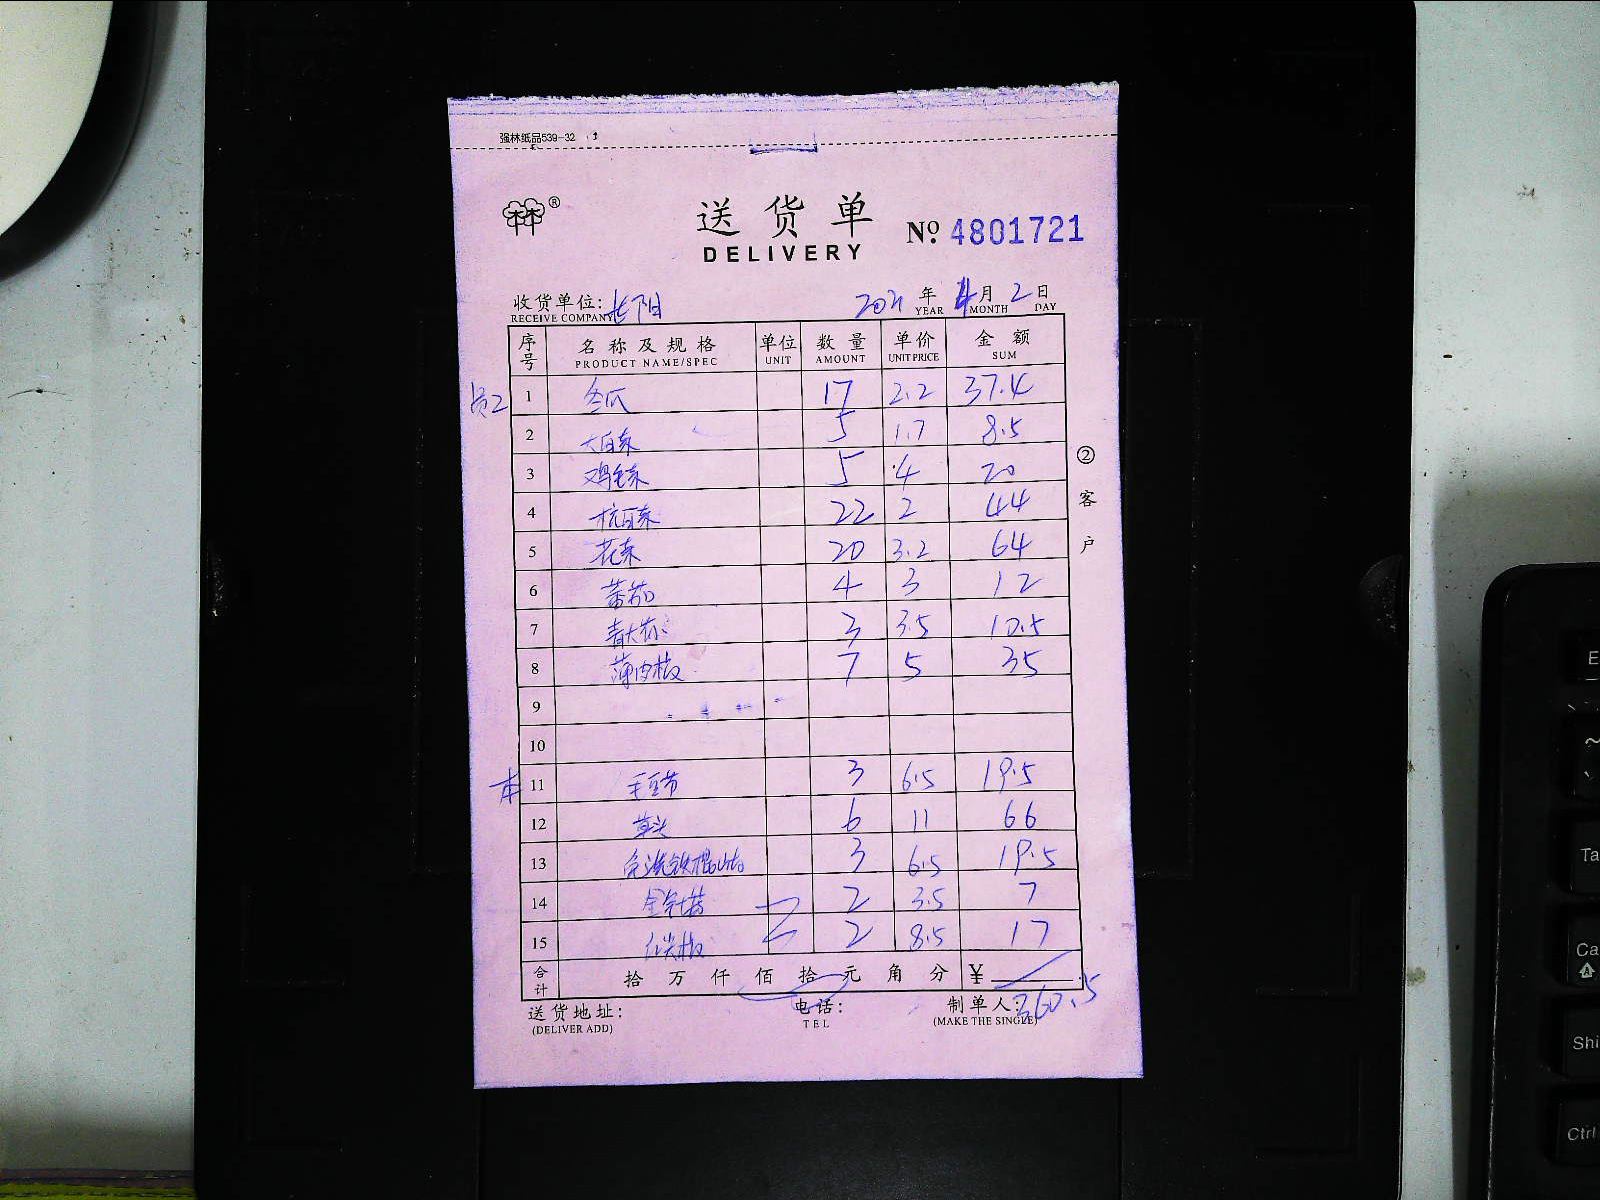 强林纸品539-32
送货单
DELIVERY
® No. 4801721
收货单位: 长阳 2021 年 4 月 2 日
RECEIVE COMPANY YEAR MONTH DAY
序号 名称及规格 单位 数量 单价 金额
PRODUCT NAME/SPEC UNIT AMOUNT UNIT PRICE SUM
员工 1 冬瓜 17 2.2 37.4
2 大白菜 5 1.7 8.5
3 鸡毛菜 5 4 20
4 杭白菜 22 2 44
5 花菜 20 3.2 64
6 蕃茄 4 3 12
7 青大茄 3 3.5 10.5
8 薄皮椒 7 5 35
9
10
11 毛豆节 3 6.5 19.5
12 草头 6 11 66
13 铁棍山药 3 6.5 19.5
14 2 3.5 7
15 红尖椒 2 8.5 17
合计 拾 万 仟 佰 拾 元 角 分 ¥ 360.5
送货地址: 电话: 制单人:
(DELIVER ADD) TEL (MAKE THE SINGLE)
②客户